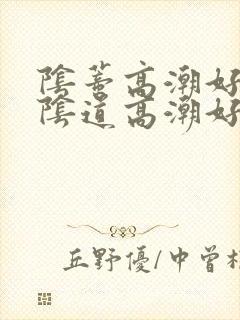 陰蒂高潮好
陰道高潮好
丘野優/中曾根